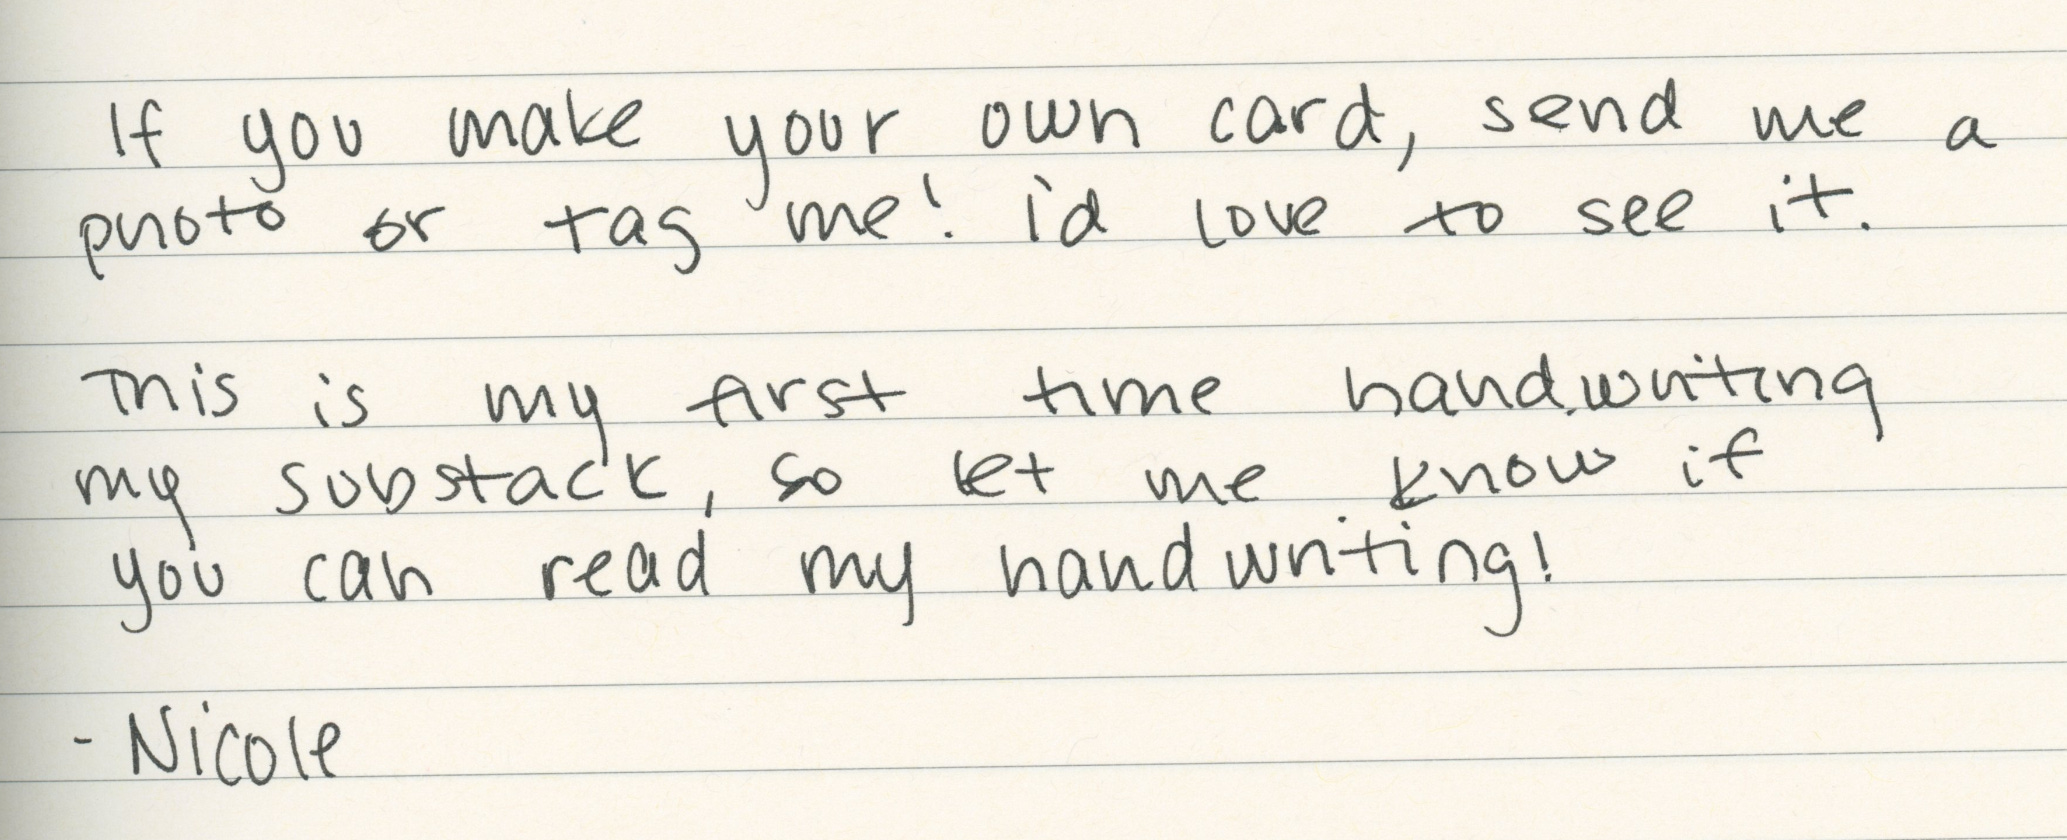 If you make your own card, send me a
photo or tag me! i'd love to see it.
This is my first time handwriting
my substack, so let me know if
you can read my handwriting!
- Nicole